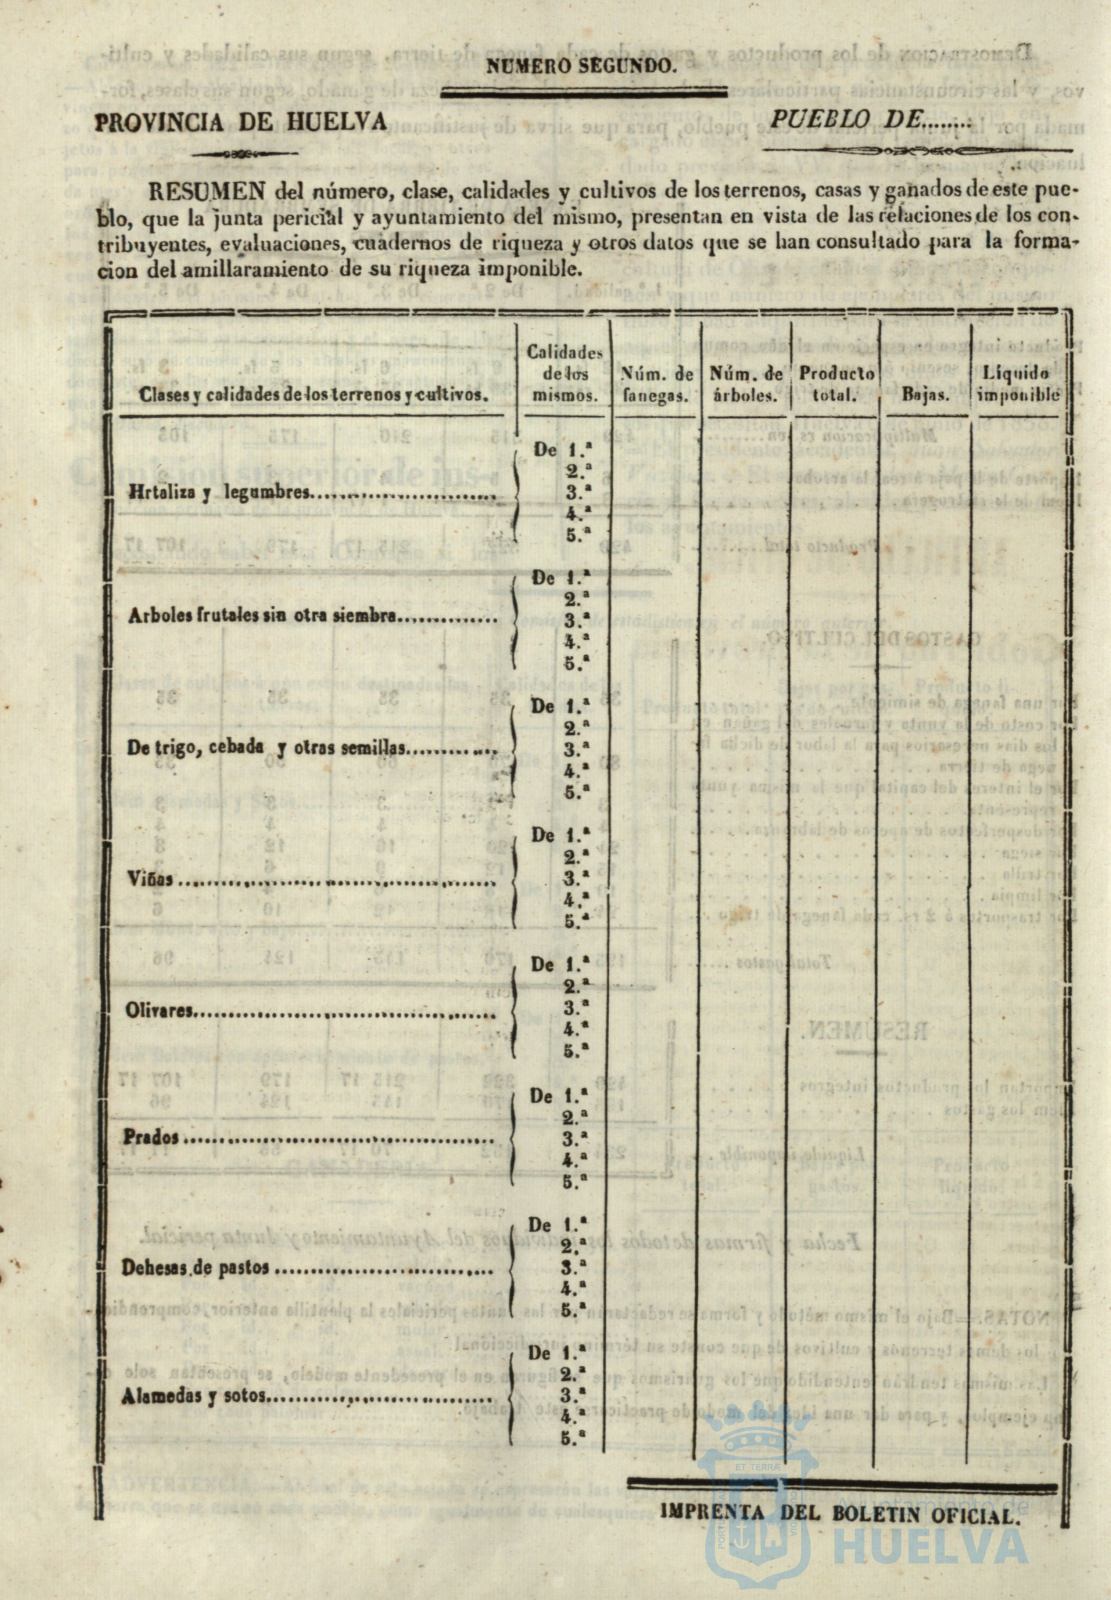 NUMERO SEGUNDO.
PROVINCIA DE HUELVA
PUEBLO DE........
RESUMEN del número, clase, calidades y cultivos de los terrenos, casas y ganados de este pue-
blo, que la junta pericial y ayuntamiento del mismo, presentan en vista de las relaciones de los con-
tribuyentes, evaluaciones, cuadernos de riqueza y otros datos que se han consultado para la forma-
cion del amillaramiento de su riqueza imponible.
Clases y calidades de los terrenos y cultivos.
Calidades
de los
mismos.
Núm. de
fanegas.
Núm. de
árboles.
Producto
total.
Bajas.
Líquido
imponible
Hrtaliza y legumbres
De 1.ª
2.ª
3.ª
4.ª
5.ª
Arboles frutales sin otra siembra
De 1.ª
2.ª
3.ª
4.ª
5.ª
De trigo, cebada y otras semillas
De 1.ª
2.ª
3.ª
4.ª
5.ª
Viñas
De 1.ª
2.ª
3.ª
4.ª
5.ª
Olivares
De 1.ª
2.ª
3.ª
4.ª
5.ª
Prados
De 1.ª
2.ª
3.ª
4.ª
5.ª
Dehesas de pastos
De 1.ª
2.ª
3.ª
4.ª
5.ª
Alamedas y sotos
De 1.ª
2.ª
3.ª
4.ª
5.ª
IMPRENTA DEL BOLETIN OFICIAL.
Ayuntamiento de
HUELVA